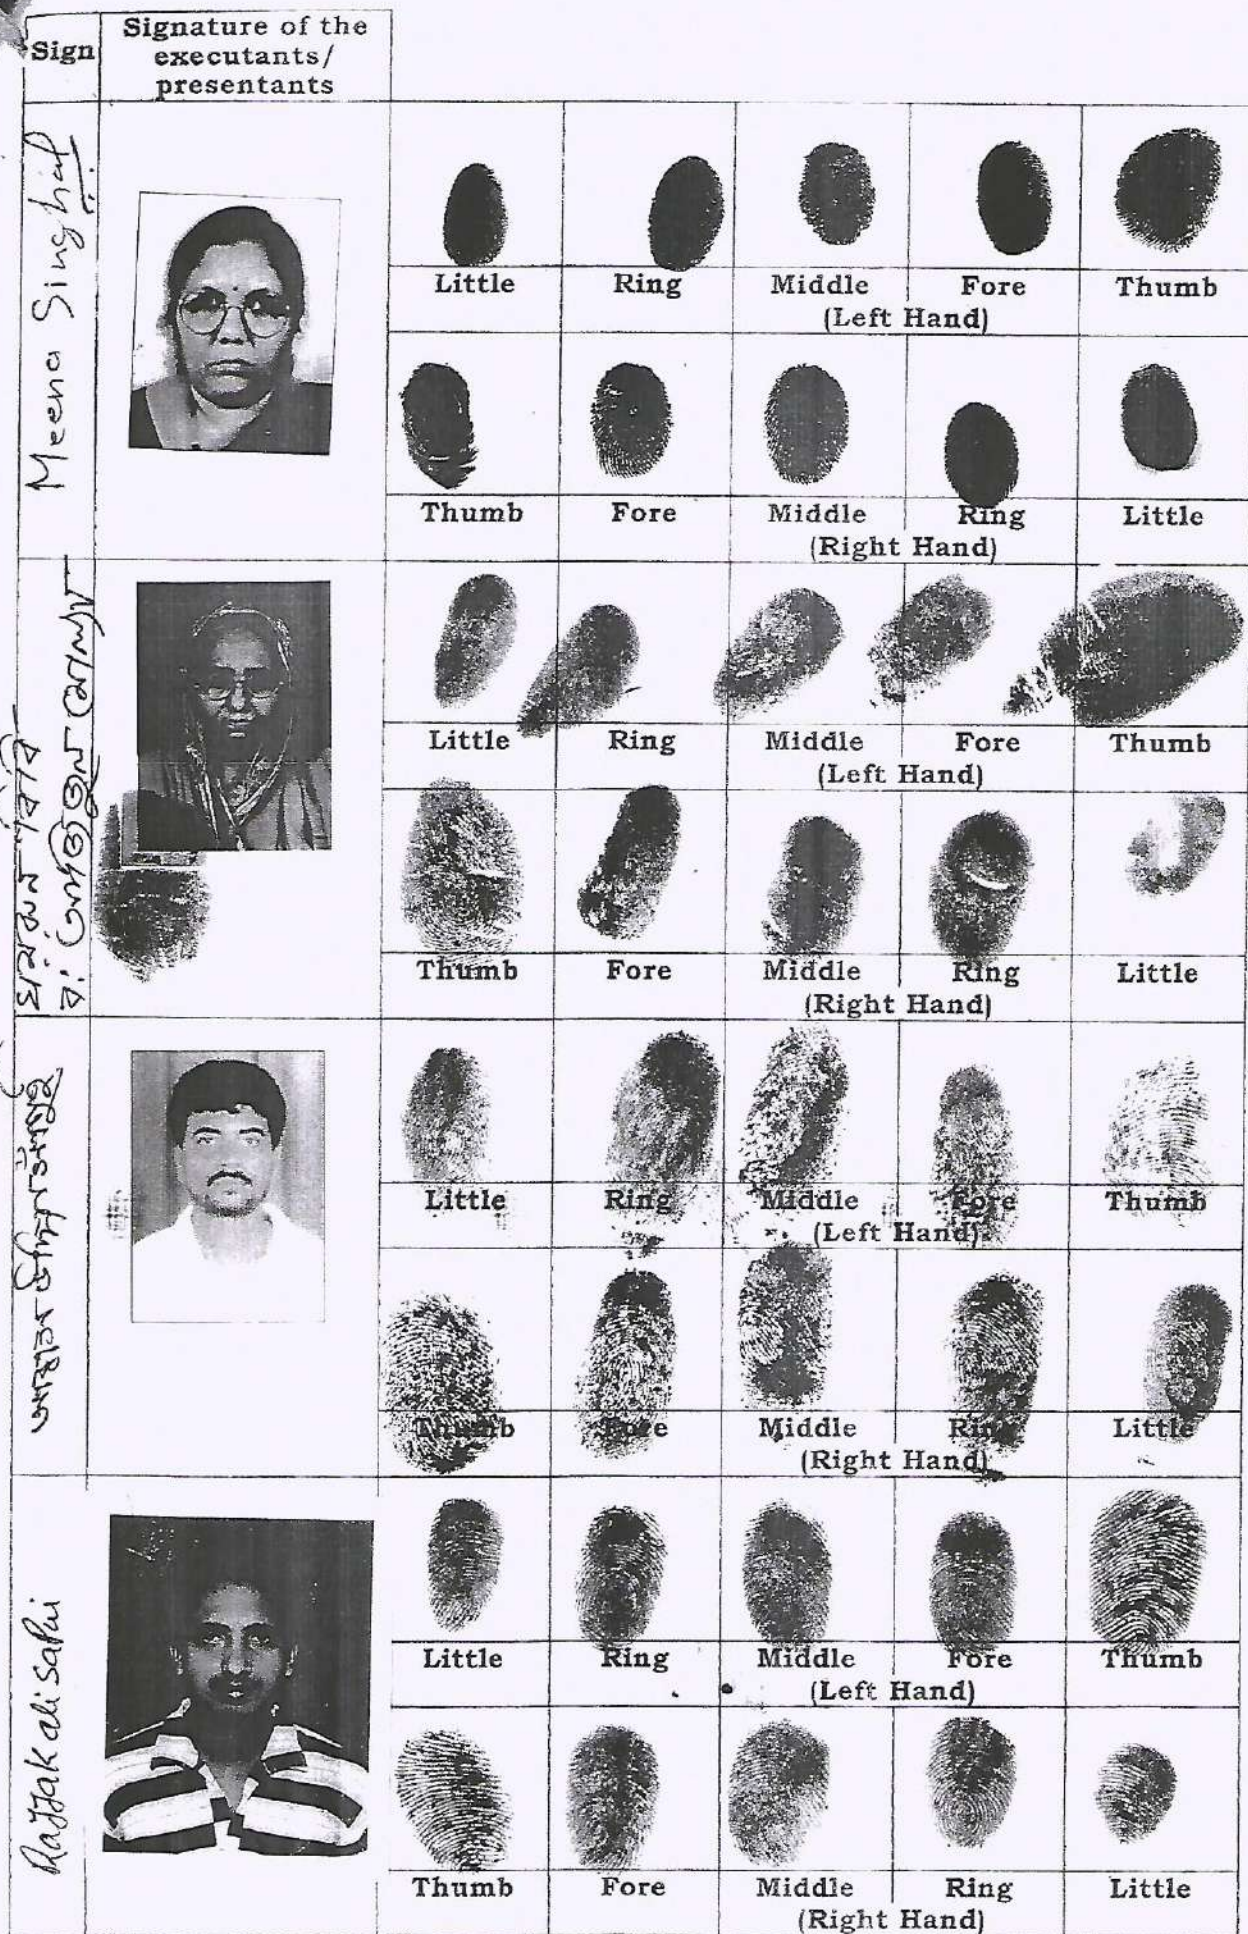 Sign
Signature of the
executants/
presentants
Meena Singhal
Little Ring Middle Fore Thumb
(Left Hand)
Thumb Fore Middle Ring Little
(Right Hand)
বিবি
Little Ring Middle Fore Thumb
(Left Hand)
Thumb Fore Middle Ring Little
(Right Hand)
Little Ring Middle Fore Thumb
(Left Hand)
Thumb Fore Middle Ring Little
(Right Hand)
Rajjak ali sapui
Little Ring Middle Fore Thumb
(Left Hand)
Thumb Fore Middle Ring Little
(Right Hand)